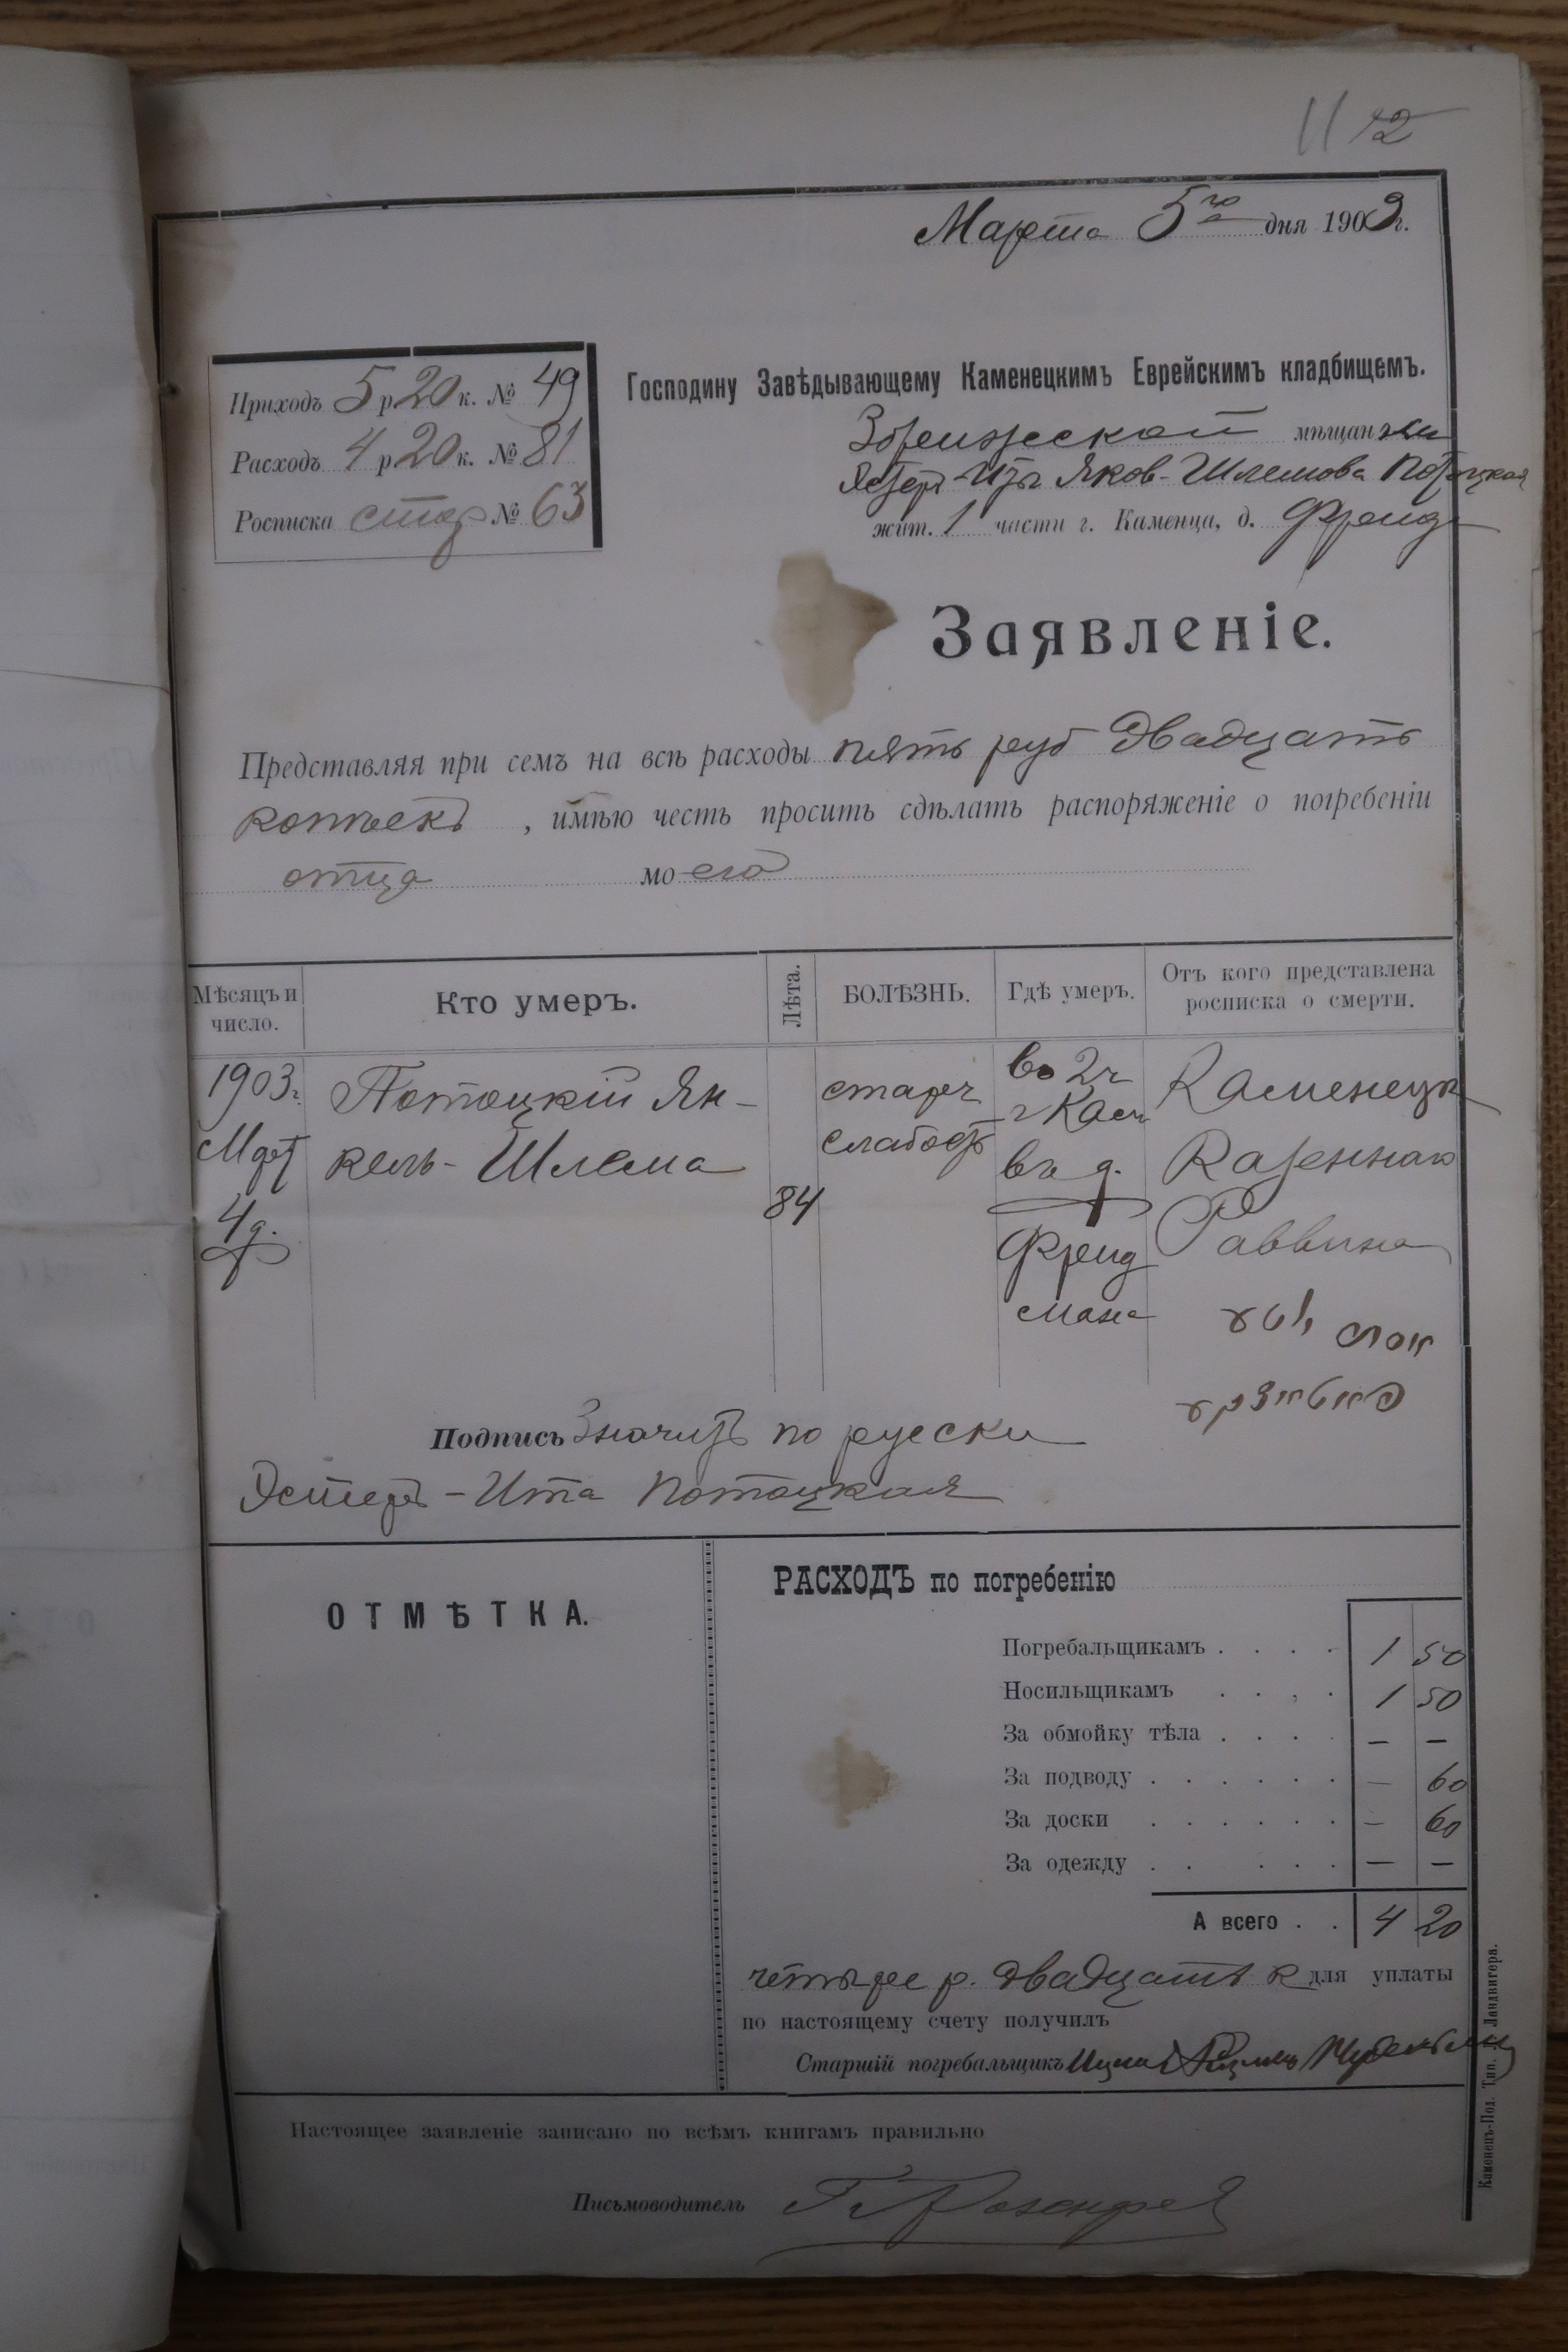 11 12
Марта 5го дня 1903 г.
Приходъ 5 р 20 к. № 49
Расходъ 4 р 20 к. № 81
Росписка стар № 63
Господину Завѣдывающему Каменецкимъ Еврейскимъ кладбищемъ.
мѣщанки
Эстер-Иты Яков-Шлемова Потоцкая
жит. 1 части г. Каменца, д. Фрейд
Заявленіе.
Представляя при семъ на всѣ расходы пять руб двадцать
копѣекъ, имѣю честь просить сдѣлать распоряженіе о погребеніи
отца моего
Мѣсяцъ и число. Кто умеръ. Лѣта. БОЛѢЗНЬ. Гдѣ умеръ. Отъ кого представлена росписка о смерти.
1903г. Потоцкій Ян- старч во 2ч Каменецк
Март кель-Шлема слабост г Кам Казеннаго
4д. 84 въ д. Раввина
Фрейд
мана
Подпись Значитъ по руски
Эстеръ-Ита Потоцкая
ОТМѢТКА.
РАСХОДЪ по погребенію
Погребальщикамъ . . . . 1 50
Носильщикамъ . . , . 1 50
За обмойку тѣла . . . . — —
За подводу . . . . . . — 60
За доски . . . . . . — 60
За одежду . . . . . — —
А всего . . 4 20
четыре р. двадцать к для уплаты
по настоящему счету получилъ
Старшій погребальщикъ
Настоящее заявленіе записано по всѣмъ книгамъ правильно
Письмоводитель
Каменецъ-Под. Тип. Ландвигера.